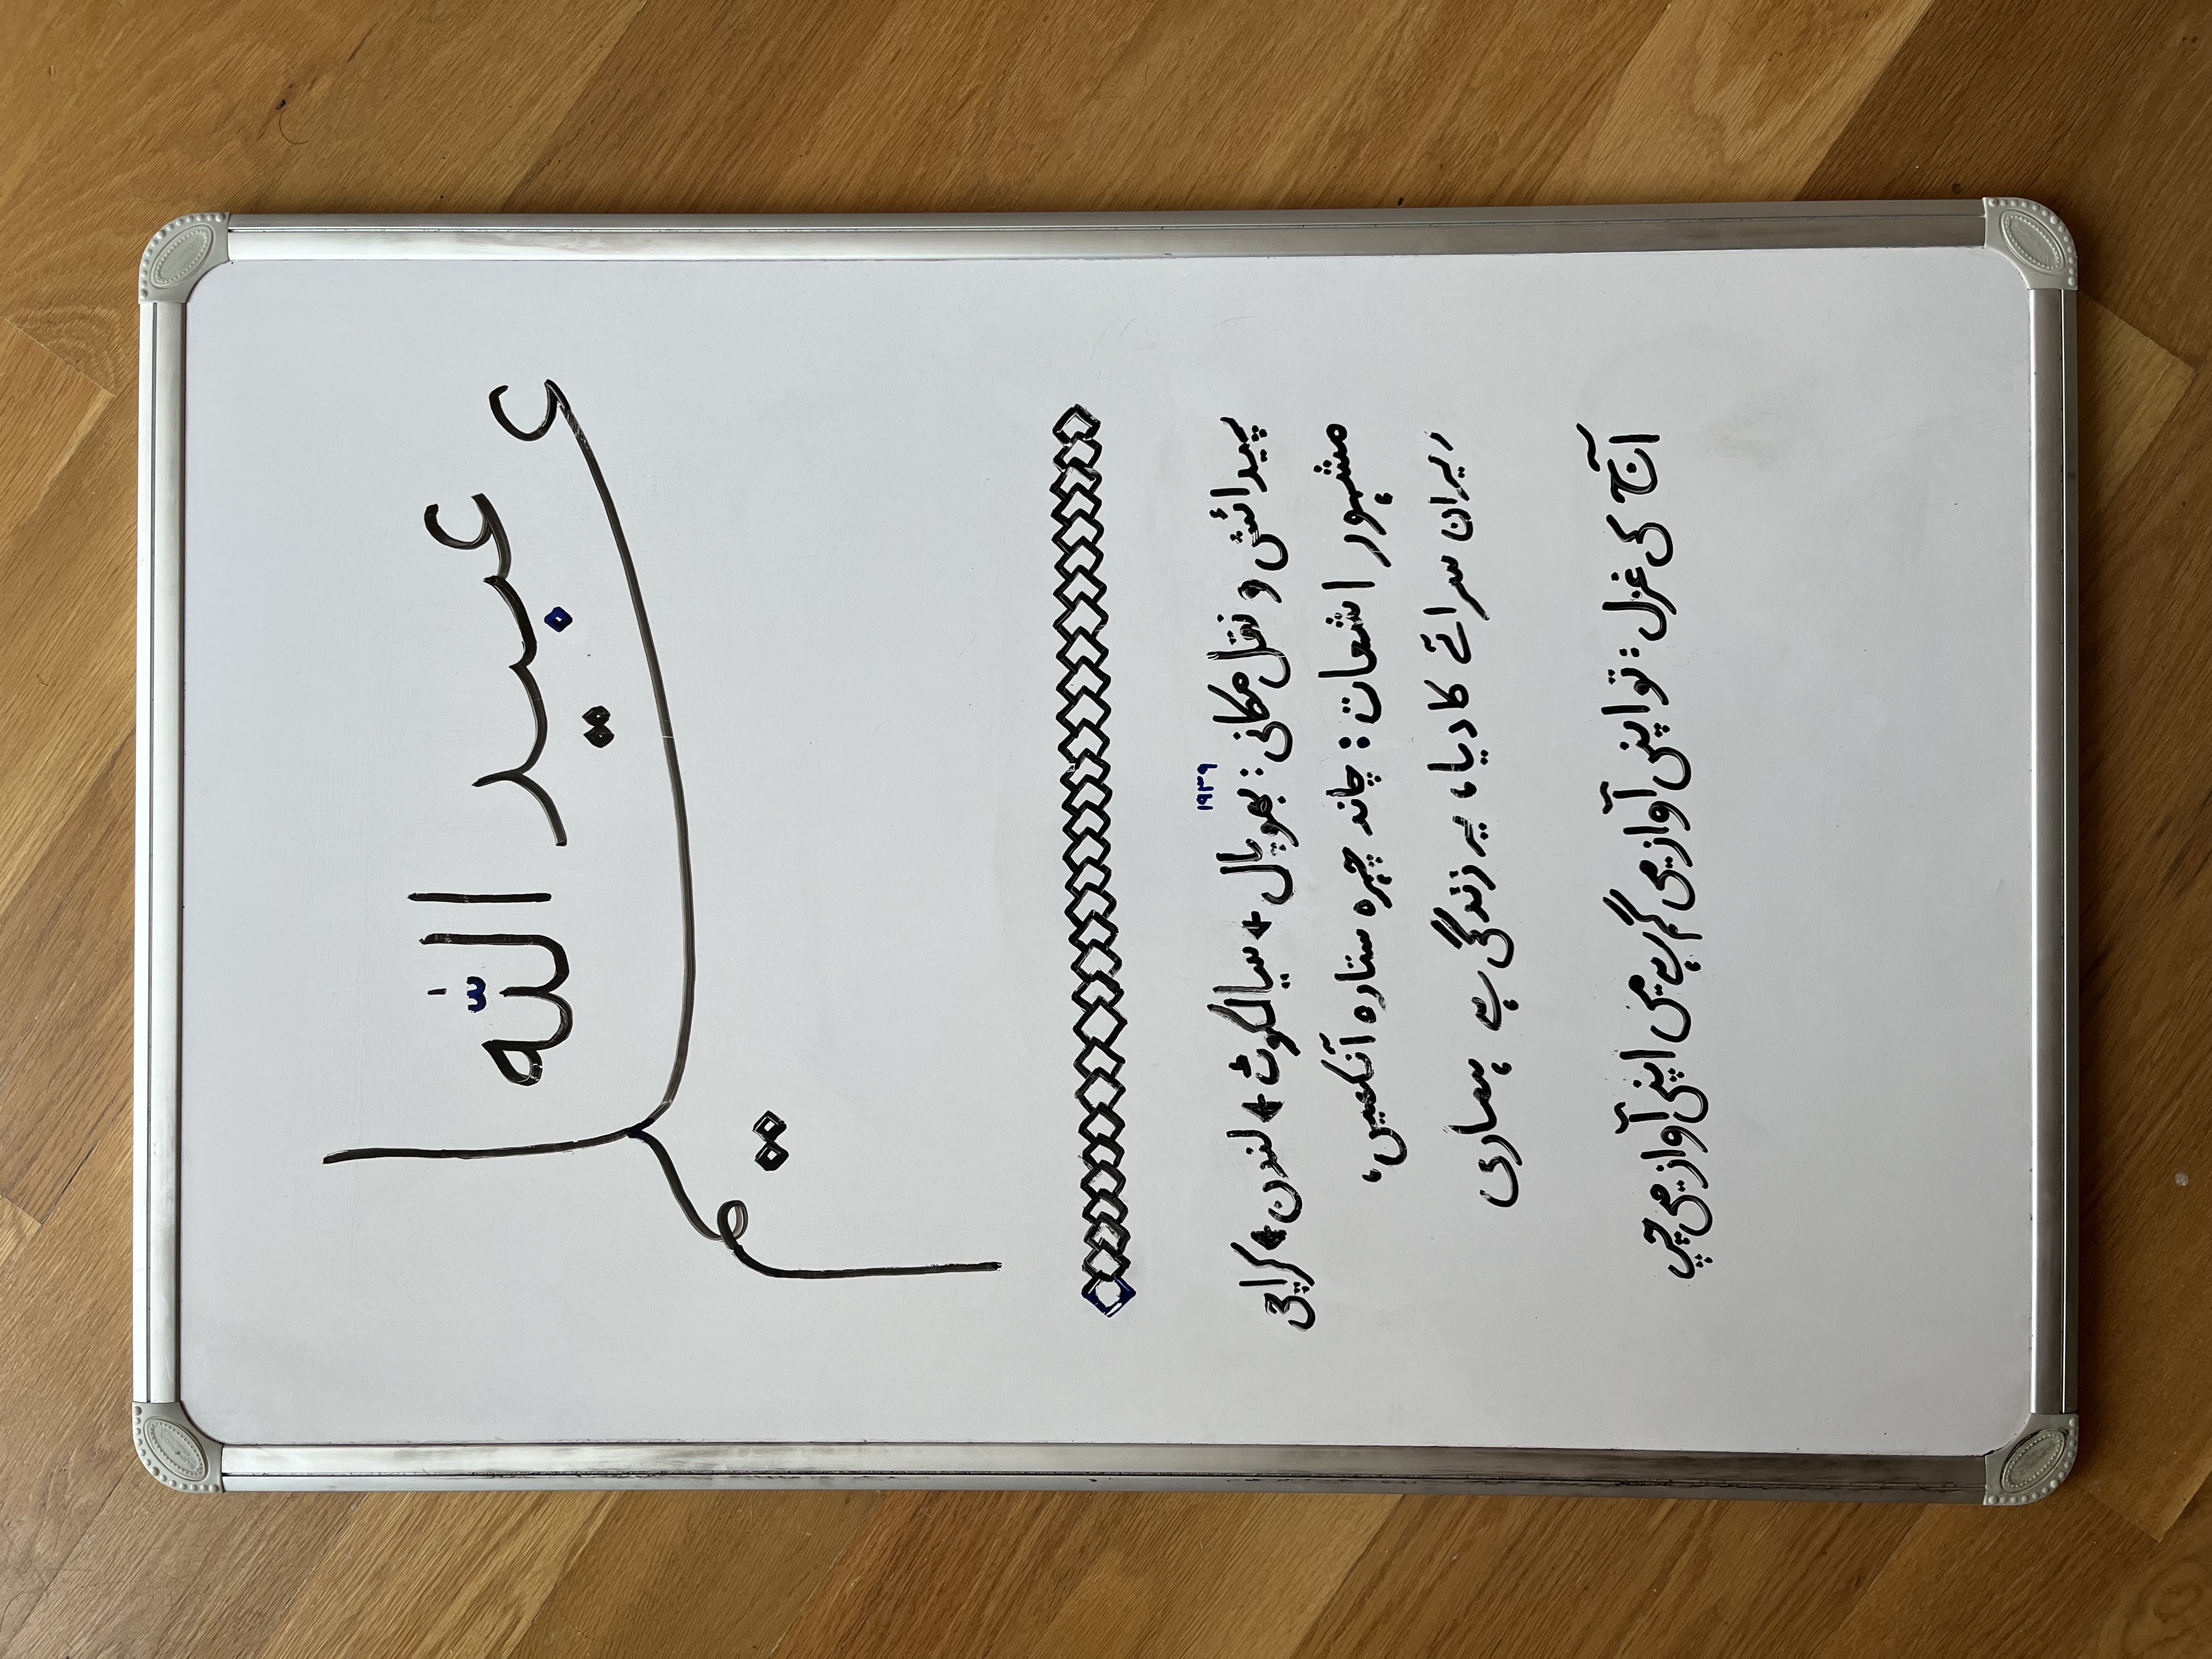 عبید اللہ
علیم
۱۹۳۹
پیدائش و نقل مکانی: بھوپال ← سیالکوٹ ← لندن ← کراچی
مشہور اشعات: چاند چہرہ ستارہ آنکھیں،
ویران سرائے کا دیا، یہ زندگی ہے ہماری
آج کی غزل: تو اپنی آواز میں گم ہے میں اپنی آواز میں چپ